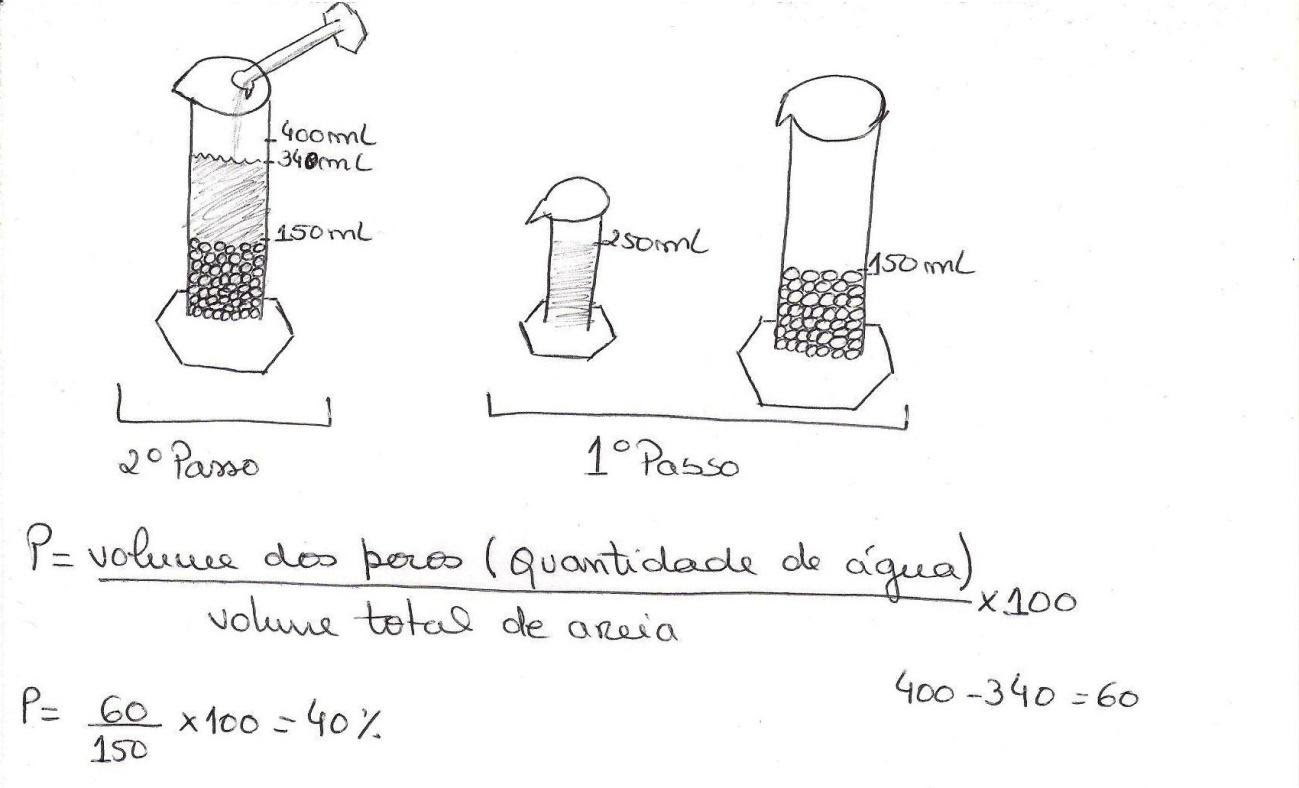 400mL
340mL
150mL
250mL
150mL
2º Passo
1º Passo
P= volume dos poros (Quantidade de água) x100
volume total de areia
400-340=60
P= 60 x100=40%
150